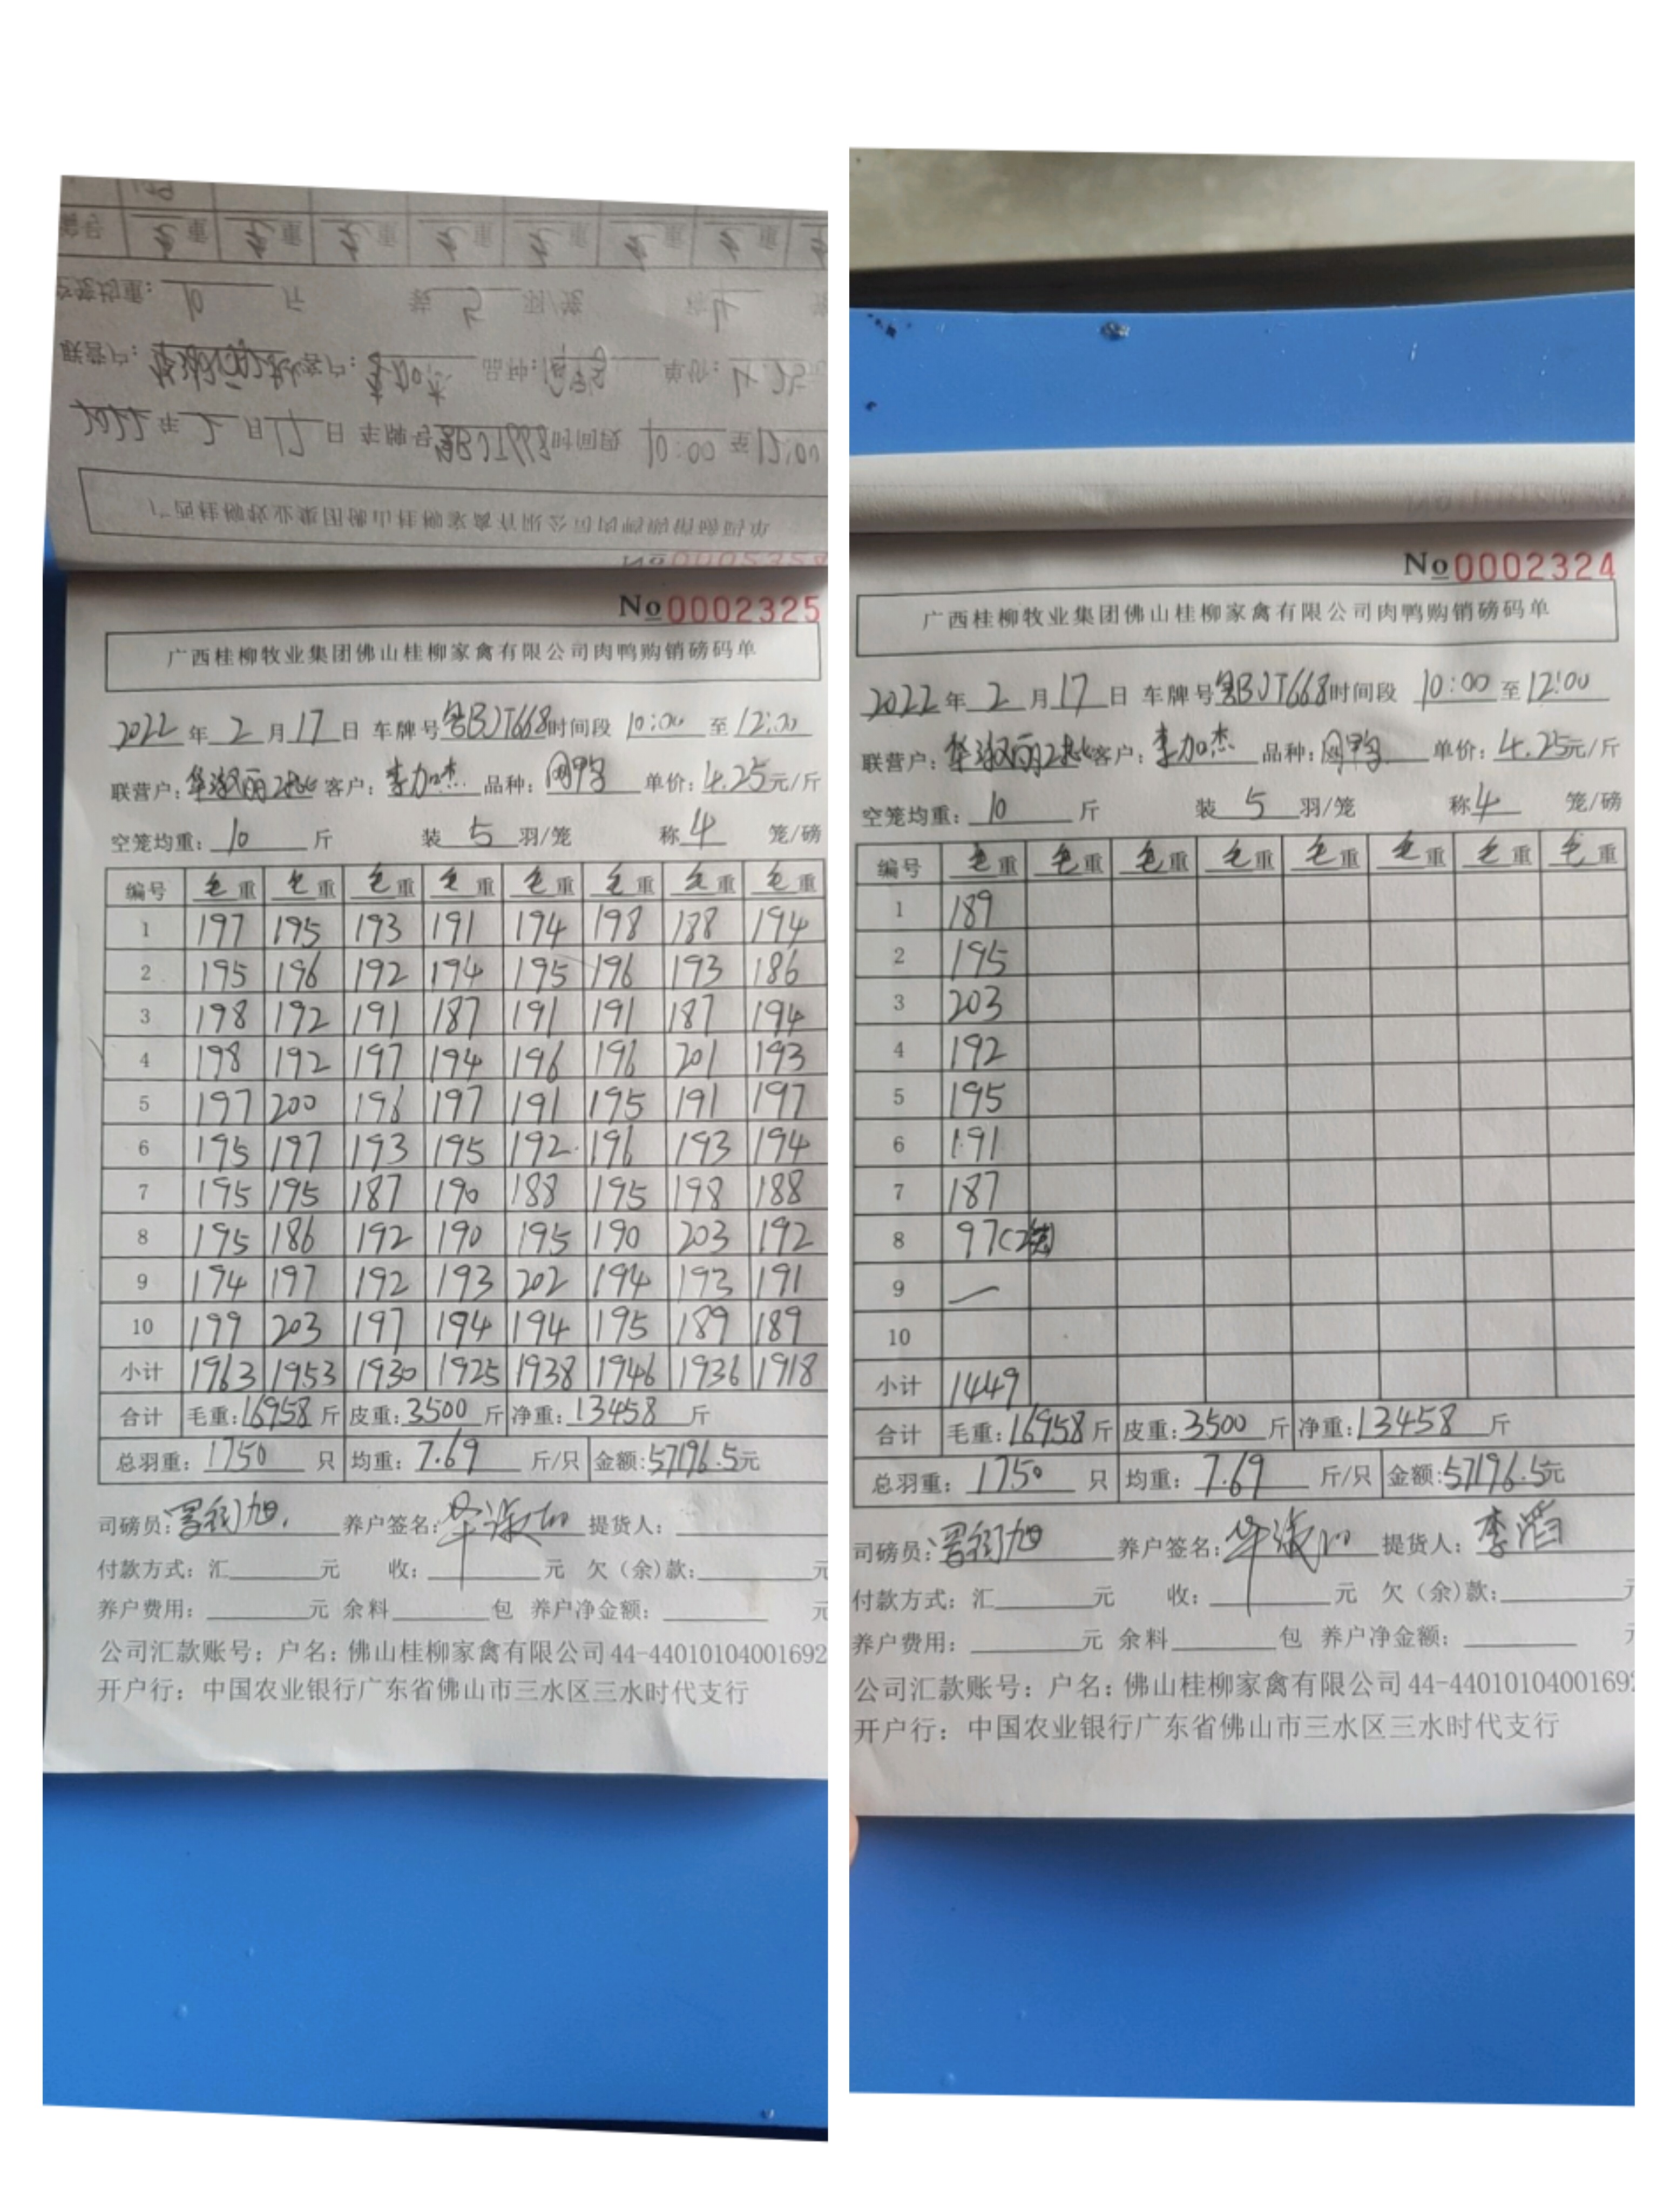 No 0002325
广西桂柳牧业集团佛山桂柳家禽有限公司肉鸭购销磅码单
2022年 2月17日 车牌号粤BJT668时间段 10:00 至 12:00
联营户: 华淑丽2批 客户: 李加杰 品种: 肉鸭 单价: 4.25元/斤
空笼均重: 10 斤 装 5 羽/笼 称 4 笼/磅
编号 毛重 毛重 毛重 毛重 毛重 毛重 毛重 毛重
1 197 195 193 191 194 198 188 194
2 195 196 192 194 195 196 193 186
3 198 192 191 187 191 191 187 194
4 198 192 197 194 196 196 201 193
5 197 200 196 197 191 195 191 197
6 195 197 193 195 192 196 193 194
7 195 195 187 190 188 195 198 188
8 195 186 192 190 195 190 203 192
9 194 197 192 193 202 194 193 191
10 199 203 197 194 194 195 189 189
小计 1963 1953 1930 1925 1938 1946 1936 1918
合计 毛重: 16958 斤 皮重: 3500 斤 净重: 13458 斤
总羽重: 1750 只 均重: 7.69 斤/只 金额: 57196.5元
司磅员: 养户签名: 提货人:
付款方式: 汇 元 收: 元 欠(余)款: 元
养户费用: 元 余料 包 养户净金额: 元
公司汇款账号: 户名: 佛山桂柳家禽有限公司 44-44010104001692
开户行: 中国农业银行广东省佛山市三水区三水时代支行
No 0002324
广西桂柳牧业集团佛山桂柳家禽有限公司肉鸭购销磅码单
2022年 2月17日 车牌号粤BJT668时间段 10:00 至 12:00
联营户: 华淑丽2批 客户: 李加杰 品种: 肉鸭 单价: 4.25元/斤
空笼均重: 10 斤 装 5 羽/笼 称 4 笼/磅
编号 毛重 毛重 毛重 毛重 毛重 毛重 毛重 毛重
1 189
2 195
3 203
4 192
5 195
6 191
7 187
8 97
9 —
10
小计 1449
合计 毛重: 16958 斤 皮重: 3500 斤 净重: 13458 斤
总羽重: 1750 只 均重: 7.69 斤/只 金额: 57196.5元
司磅员: 养户签名: 提货人: 李滔
付款方式: 汇 元 收: 元 欠(余)款: 元
养户费用: 元 余料 包 养户净金额: 元
公司汇款账号: 户名: 佛山桂柳家禽有限公司 44-44010104001692
开户行: 中国农业银行广东省佛山市三水区三水时代支行